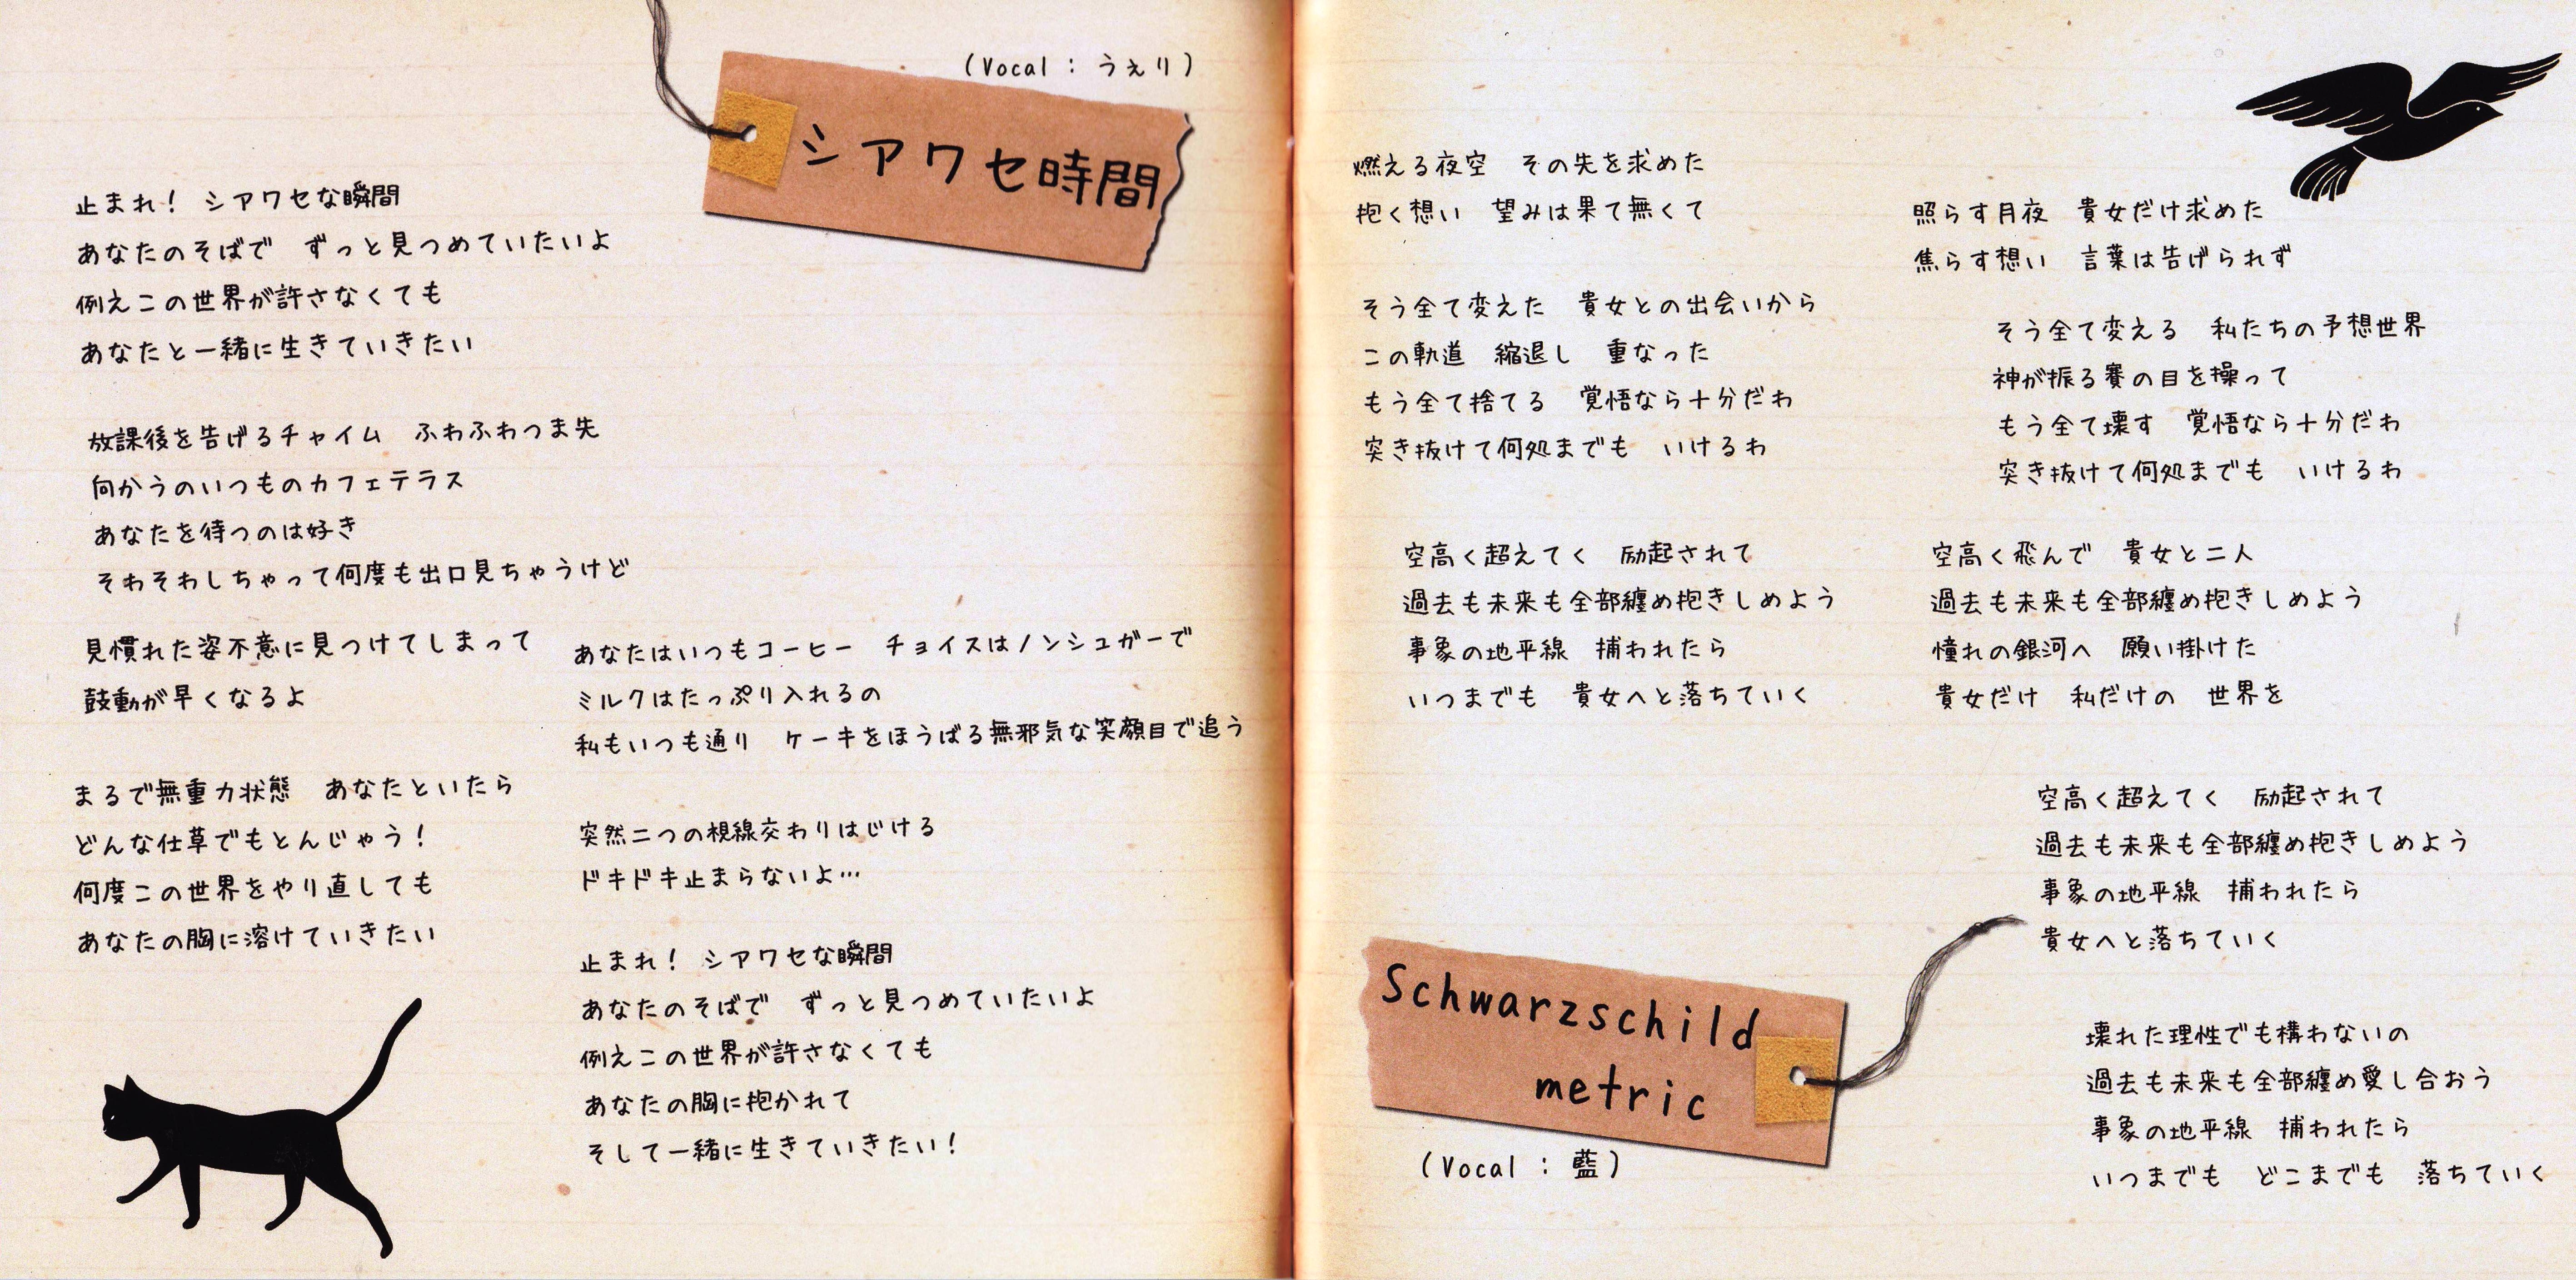 (Vocal : うぇり)
シアワセ時間
止まれ! シアワセな瞬間
あなたのそばで ずっと見つめていたいよ
例えこの世界が許さなくても
あなたと一緒に生きていきたい
放課後を告げるチャイム ふわふわつま先
向かうのいつものカフェテラス
あなたを待つのは好き
そわそわしちゃって何度も出口見ちゃうけど
見慣れた姿不意に見つけてしまって
鼓動が早くなるよ
まるで無重力状態 あなたといたら
どんな仕草でもとんじゃう!
何度この世界をやり直しても
あなたの胸に溶けていきたい
あなたはいつもコーヒー チョイスはノンシュガーで
ミルクはたっぷり入れるの
私もいつも通り ケーキをほうばる無邪気な笑顔目で追う
突然二つの視線交わりはじける
ドキドキ止まらないよ…
止まれ! シアワセな瞬間
あなたのそばで ずっと見つめていたいよ
例えこの世界が許さなくても
あなたの胸に抱かれて
そして一緒に生きていきたい!
燃える夜空 その先を求めた
抱く想い 望みは果て無くて
そう全て変えた 貴女との出会いから
この軌道 縮退し 重なった
もう全て捨てる 覚悟なら十分だわ
突き抜けて何処までも いけるわ
空高く超えてく 励起されて
過去も未来も全部纏め抱きしめよう
事象の地平線 捕われたら
いつまでも 貴女へと落ちていく
照らす月夜 貴女だけ求めた
焦らす想い 言葉は告げられず
そう全て変える 私たちの予想世界
神が振る賽の目を操って
もう全て壊す 覚悟なら十分だわ
突き抜けて何処までも いけるわ
空高く飛んで 貴女と二人
過去も未来も全部纏め抱きしめよう
憧れの銀河へ 願い掛けた
貴女だけ 私だけの 世界を
空高く超えてく 励起されて
過去も未来も全部纏め抱きしめよう
事象の地平線 捕われたら
貴女へと落ちていく
壊れた理性でも構わないの
過去も未来も全部纏め愛し合おう
事象の地平線 捕われたら
いつまでも どこまでも 落ちていく
Schwarzschild
metric
(Vocal : 藍)